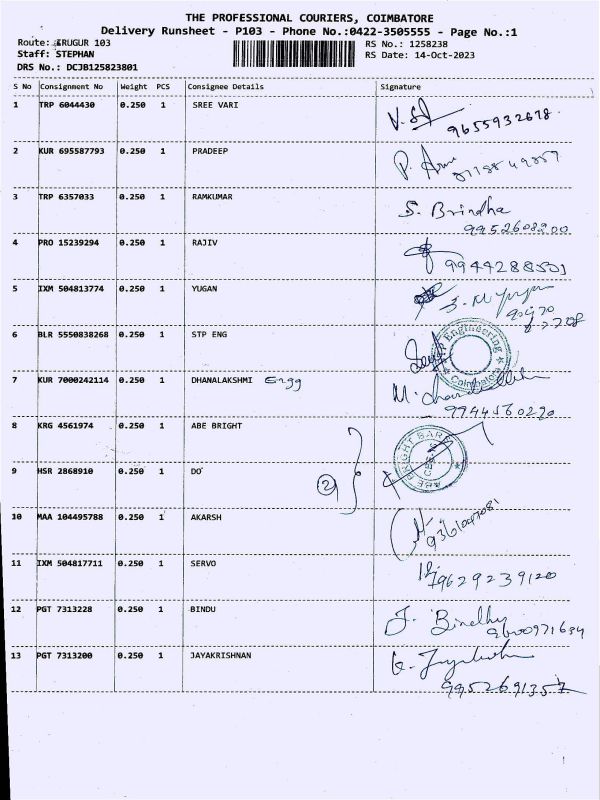 THE PROFESSIONAL COURIERS, COIMBATORE
Delivery Runsheet - P103 - Phone No.:0422-3505555 - Page No.:1
Route: IRUGUR 103 RS No.: 1258238
Staff: STEPHAN RS Date: 14-Oct-2023
DRS No.: DCJB125823801
S No Consignment No Weight PCS Consignee Details Signature
1 TRP 6044430 0.250 1 SREE VARI
9655932678
2 KUR 695587793 0.250 1 PRADEEP
3 TRP 6357033 0.250 1 RAMKUMAR S. Brindha
9952608200
4 PRO 15239294 0.250 1 RAJIV
9944288531
5 IXM 504813774 0.250 1 YUGAN
6 BLR 5550838268 0.250 1 STP ENG
Engineering
Coimbatore
7 KUR 7000242114 0.250 1 DHANALAKSHMI Engg
9944560220
8 KRG 4561974 0.250 1 ABE BRIGHT
ABE BRIGHT BAR
9 HSR 2868910 0.250 1 DO
2
10 MAA 104495788 0.250 1 AKARSH
9361047081
11 IXM 504817711 0.250 1 SERVO
9629239120
12 PGT 7313228 0.250 1 BINDU J. Bindhu
9600971634
13 PGT 7313200 0.250 1 JAYAKRISHNAN
9952691357